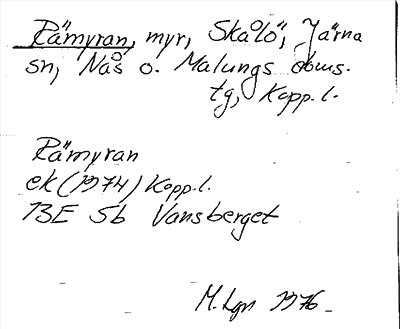 Rämyran, myr, Skålö, Järna
sn, Nås o. Malungs doms.
tg, Kopp.l.
Rämyran
ek (1974) Kopp.l.
13E 5b Vansberget
M. Lgn 1976